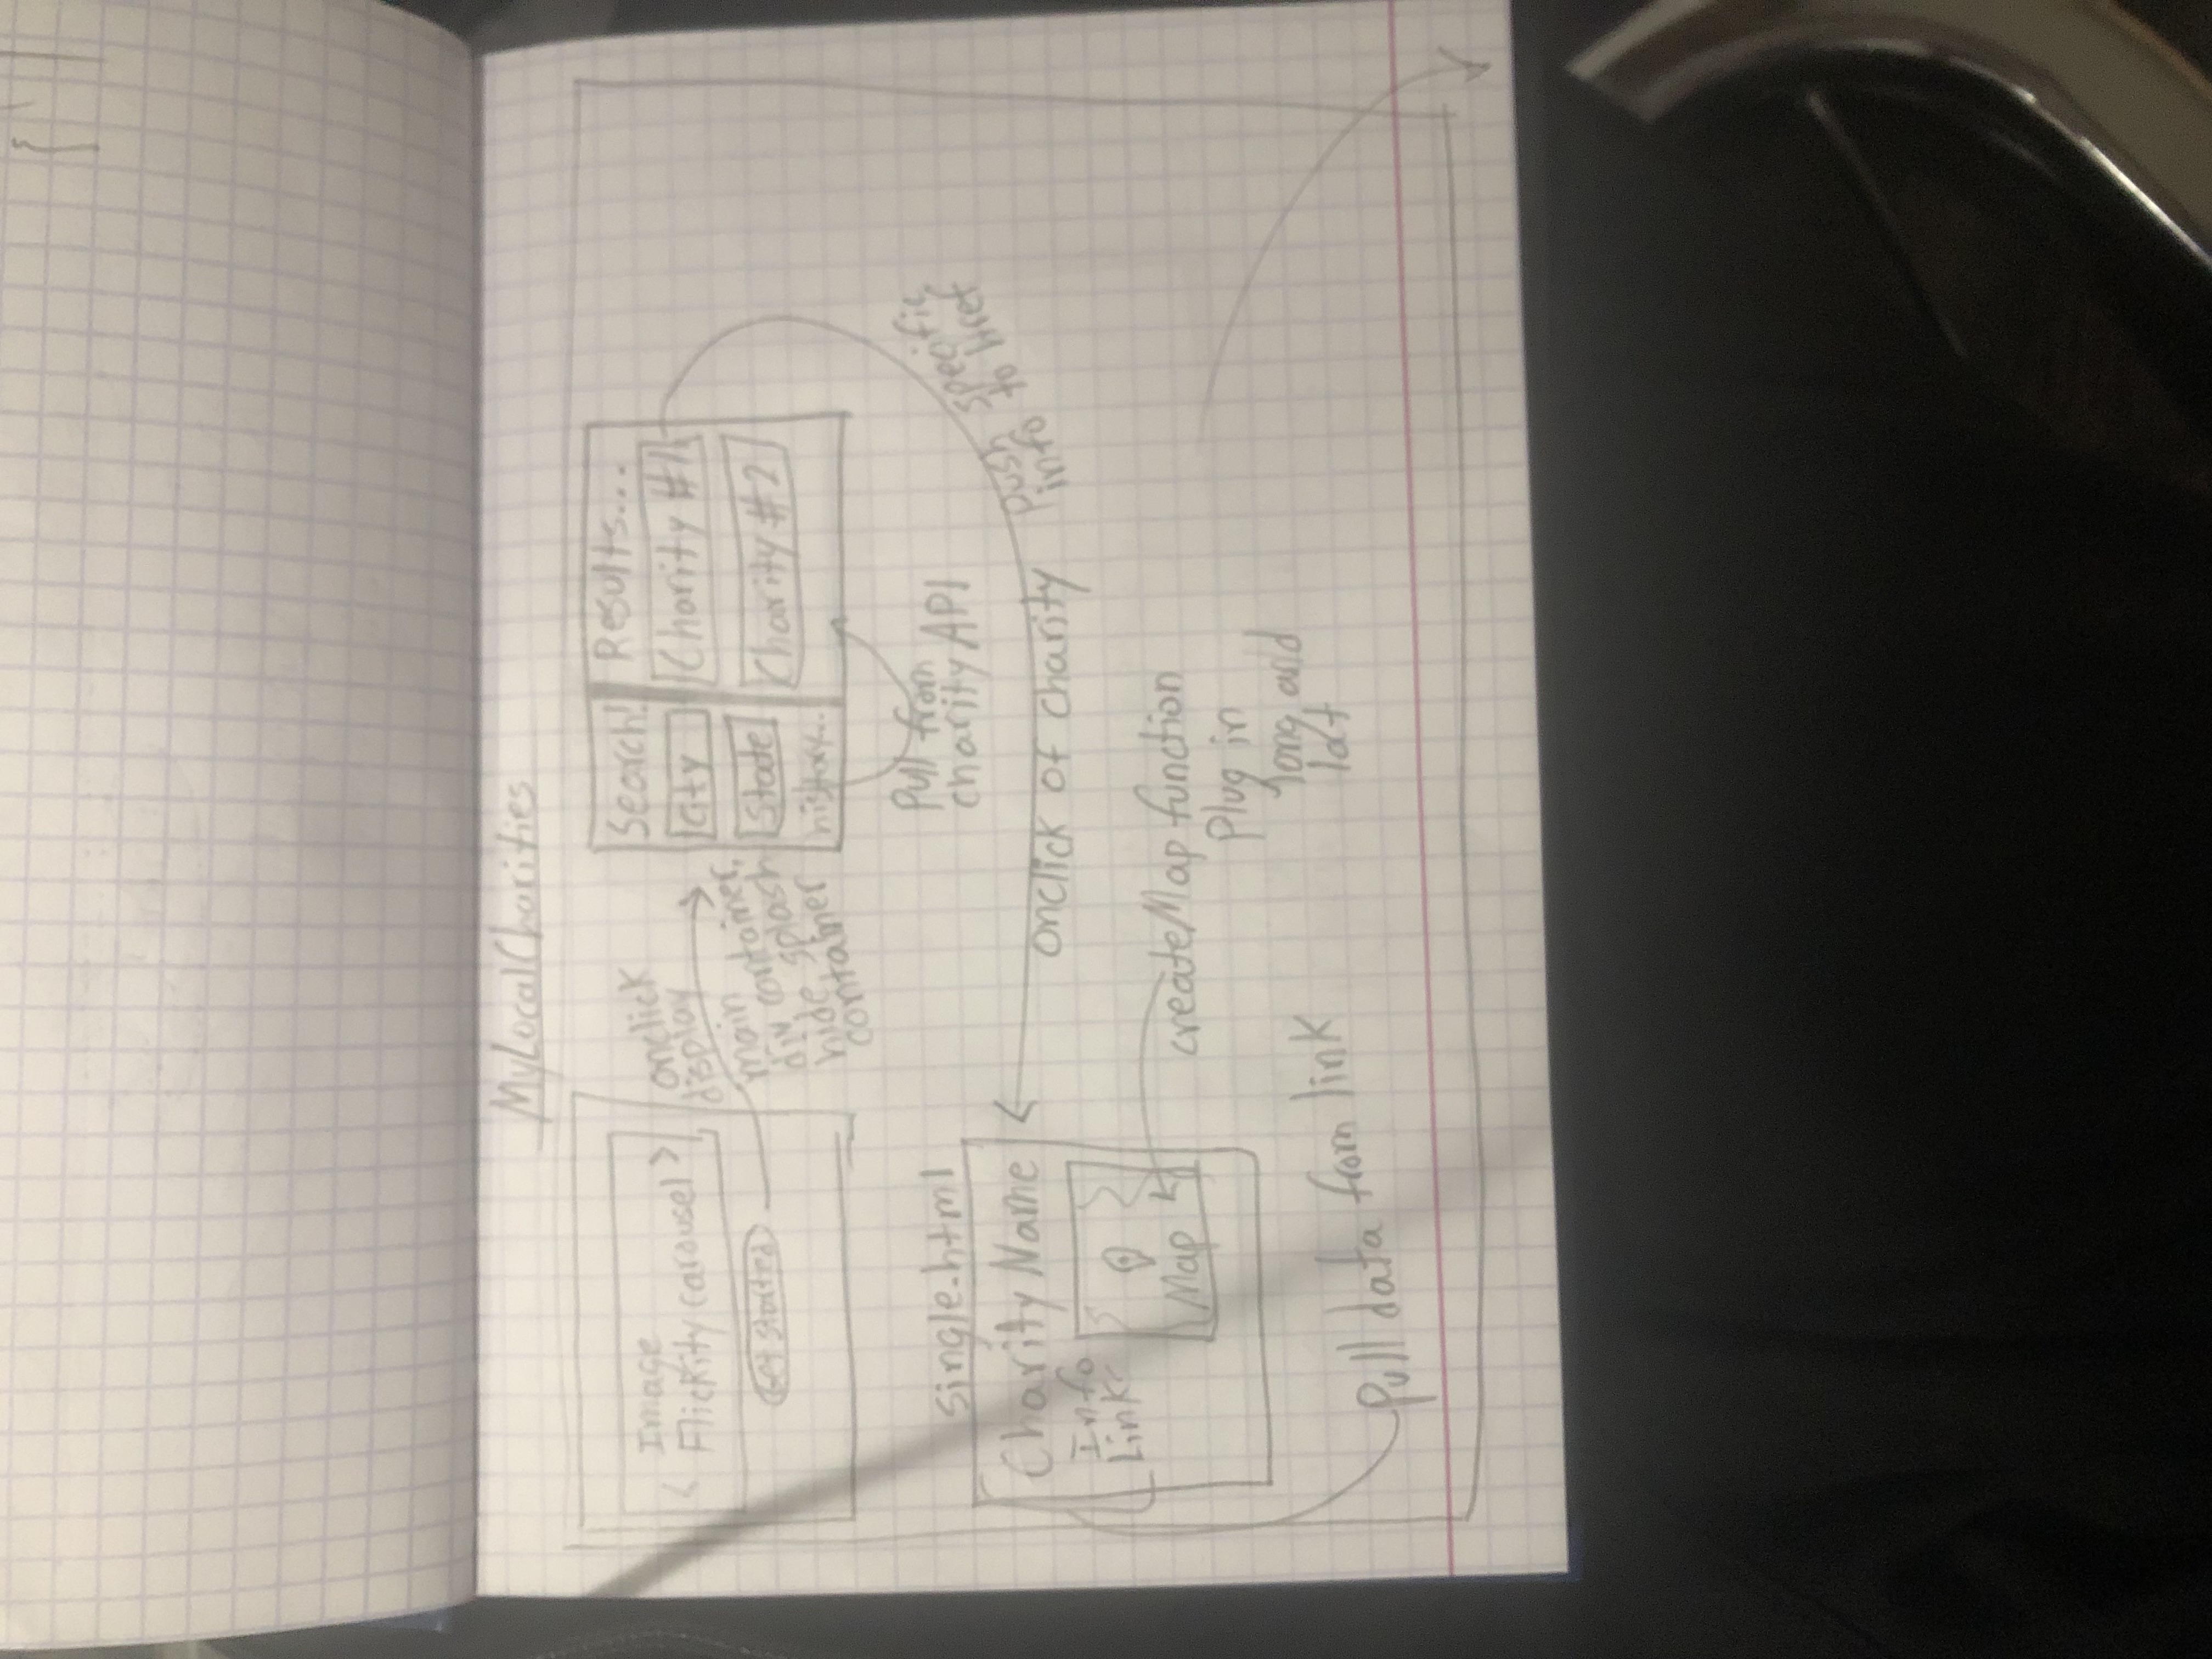 MyLocalCharities
Image
< Flickity carousel >
Get Started
onclick
display
main
div container,
hide splash
container
Search!
City
State
history...
Results...
Charity #1
Charity #2
Pull from
charity API
push specific
info to href
onclick of charity
single.html
Charity Name
Info
Links
Map
createMap function
Plug in
long and
lat
Pull data from link